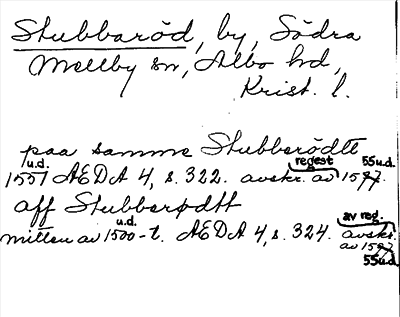 Stubbaröd, by, Södra
Mellby sn, Albo hd,
Krist. l.
paa samme Stubberødtt
u.d. regest 55 u.d.
1551 AEDA 4, s. 322. avskr. av 1597.
aff Stubberødtt
u.d. av reg.
mitten av 1500-t. AEDA 4, s. 324. avskr.
av 1597
55 u.d.